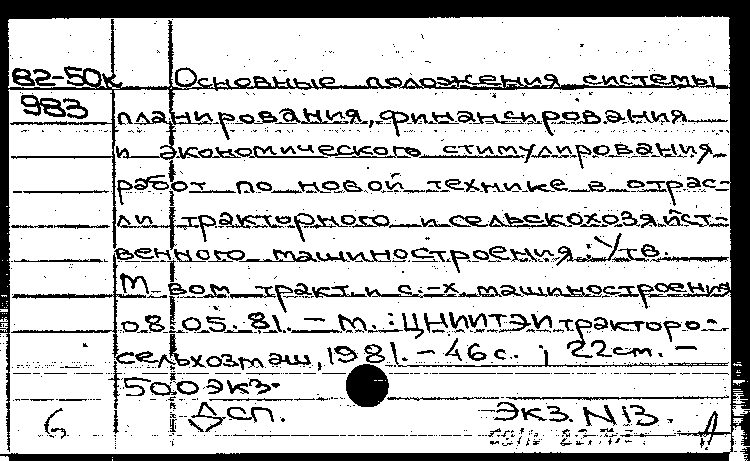 82-50к Основные положения системы
983 планирования, финансирования
и экономического стимулирования
работ по новой технике в отрас-
ли тракторного и сельскохозяйст-
венного машиностроения: Утв.
М-вом тракт. и с.-х. машиностроения
08.05.81. – М.: ЦНИИТЭИ тракторо-
сельхозмаш, 1981. – 46 с. ; 22 см. –
500 экз.
6 ДСП. Экз. N 13.